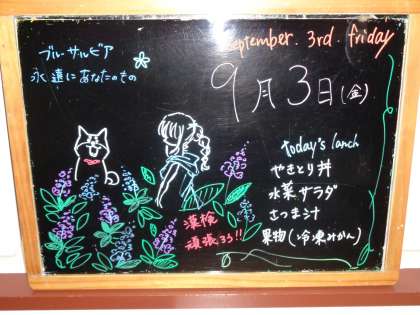 ブルーサルビア
永遠にあなたのもの
September. 3rd. friday
9月3日(金)
today's lanch
やきとり丼
水菜サラダ
さつま汁
果物(冷凍みかん)
漢検
頑張ろう!!